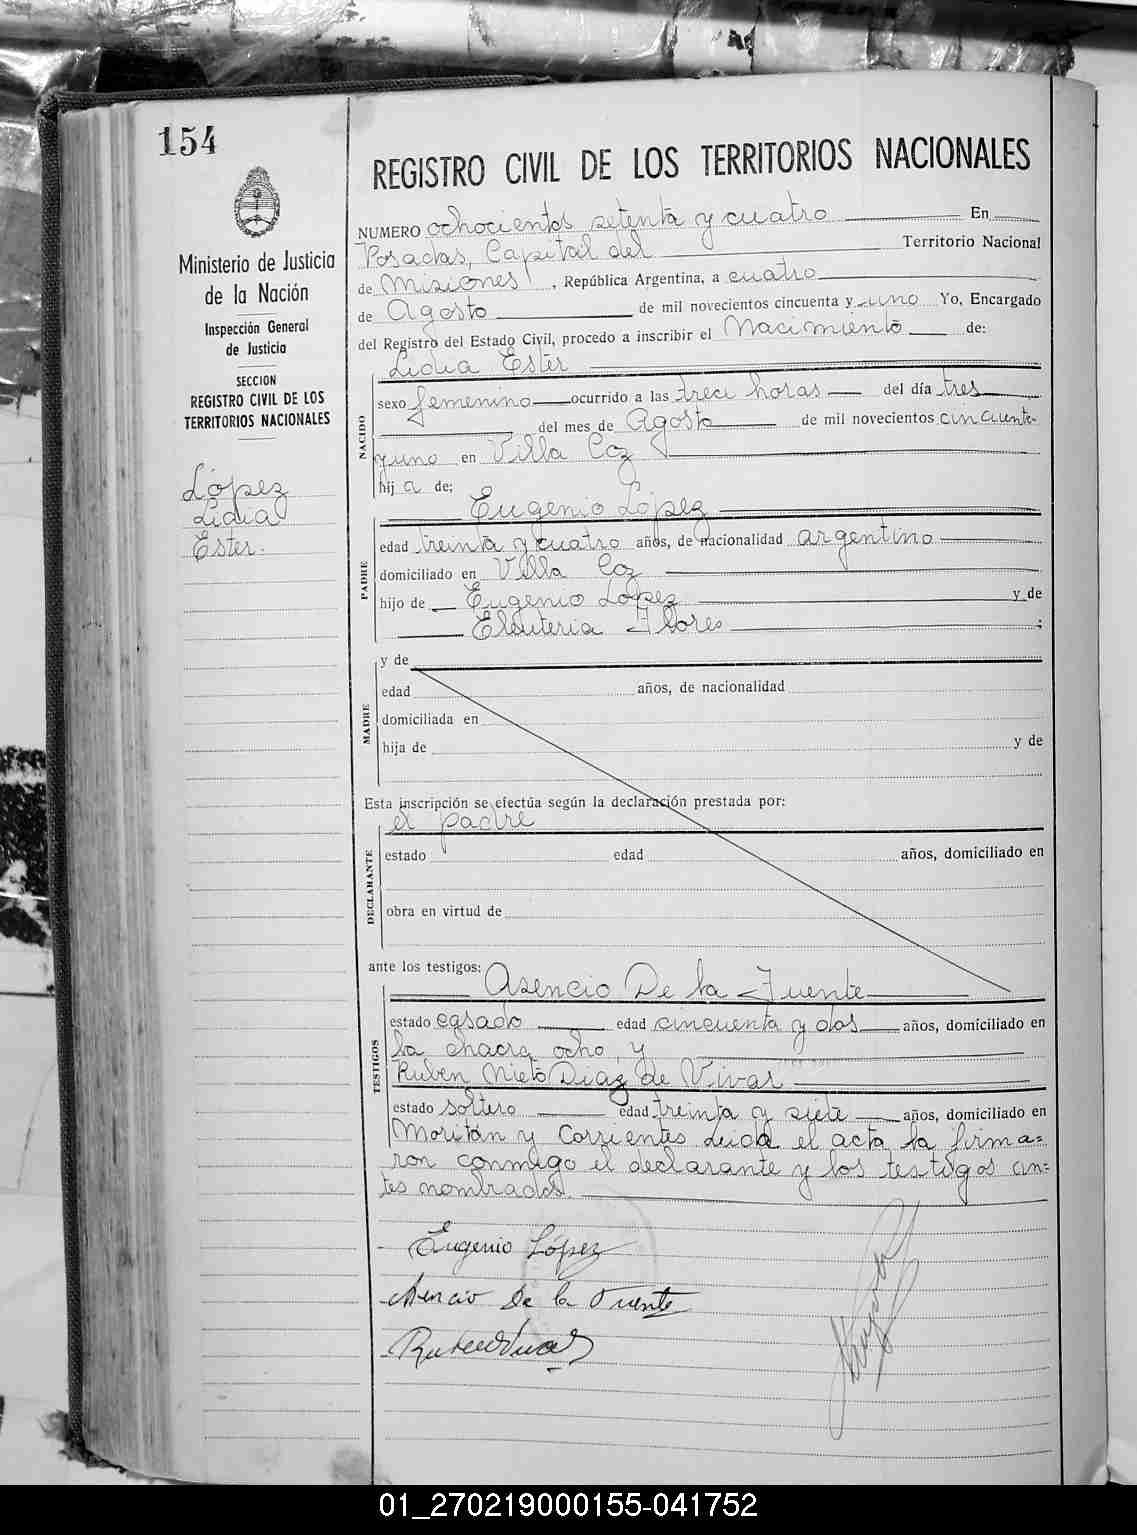 154
Ministerio de Justicia
de la Nación
Inspección General
de Justicia
SECCION
REGISTRO CIVIL DE LOS
TERRITORIOS NACIONALES
López
Lidia
Ester.
REGISTRO CIVIL DE LOS TERRITORIOS NACIONALES
NUMERO ochocientos setenta y cuatro En
Posadas, Capital del Territorio Nacional
de Misiones, República Argentina, a cuatro
de Agosto de mil novecientos cincuenta y uno Yo, Encargado
del Registro del Estado Civil, procedo a inscribir el Nacimiento de:
Lidia Ester
NACIDO
sexo femenino ocurrido a las trece horas del día tres
del mes de Agosto de mil novecientos cincuenta
y uno en Villa Coz
hij a de:
Eugenio López
PADRE
edad treinta y cuatro años, de nacionalidad argentino
domiciliado en Villa Coz
hijo de Eugenio López y de
Eleuteria Flores ;
MADRE
y de
edad años, de nacionalidad
domiciliada en
hija de y de
Esta inscripción se efectúa según la declaración prestada por:
el padre
DECLARANTE
estado edad años, domiciliado en
obra en virtud de
ante los testigos: Asencio De la Fuente
TESTIGOS
estado casado edad cincuenta y dos años, domiciliado en
la chacra ocho, y
Ruben Nieto Diaz de Vivar
estado soltero edad treinta y siete años, domiciliado en
Moritán y Corrientes Leida el acta la firma=
ron conmigo el declarante y los testigos an=
tes nombrados.
Eugenio López
Asencio De la Fuente
01_270219000155-041752